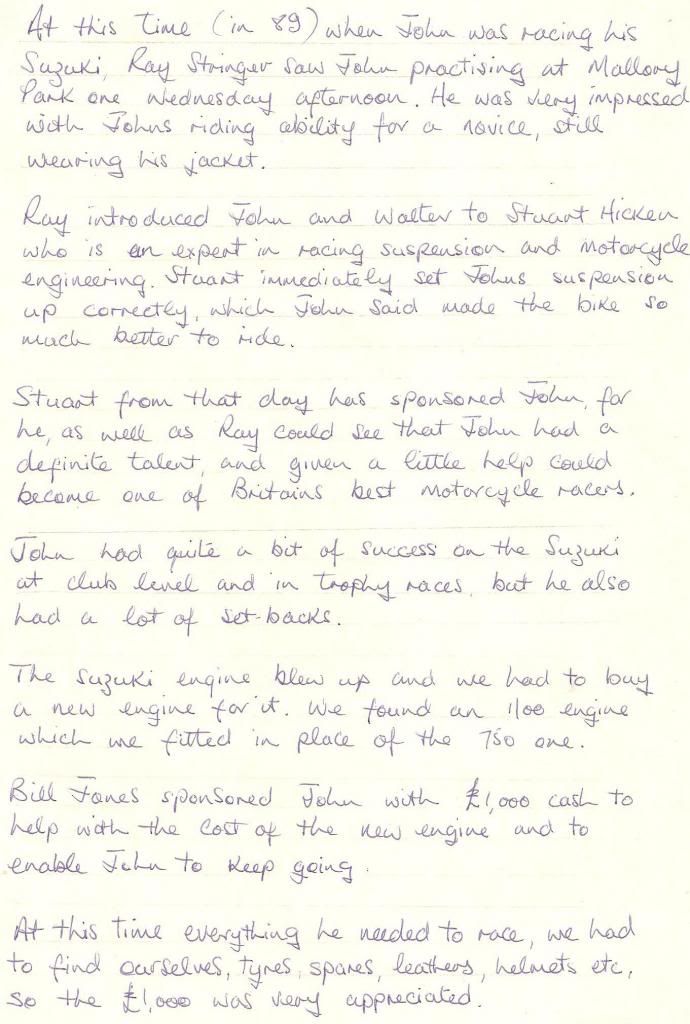 At this time (in 89) when John was racing his
Suzuki, Ray Stringer saw John practising at Mallory
Park one Wednesday afternoon. He was very impressed
with Johns riding ability for a novice, still
wearing his jacket.
Ray introduced John and Walter to Stuart Hicken
who is an expert in racing suspension and motorcycle
engineering. Stuart immediately set Johns suspension
up correctly, which John said made the bike so
much better to ride.
Stuart from that day has sponsored John, for
he, as well as Ray could see that John had a
definite talent, and given a little help could
become one of Britains best motorcycle racers.
John had quite a bit of success on the Suzuki
at club level and in trophy races, but he also
had a lot of set-backs.
The Suzuki engine blew up and we had to buy
a new engine for it. We found an 1100 engine
which we fitted in place of the 750 one.
Bill Jones sponsored John with £1,000 cash to
help with the cost of the new engine and to
enable John to keep going.
At this time everything he needed to race, we had
to find ourselves, tyres, spares, leathers, helmets etc,
so the £1,000 was very appreciated.